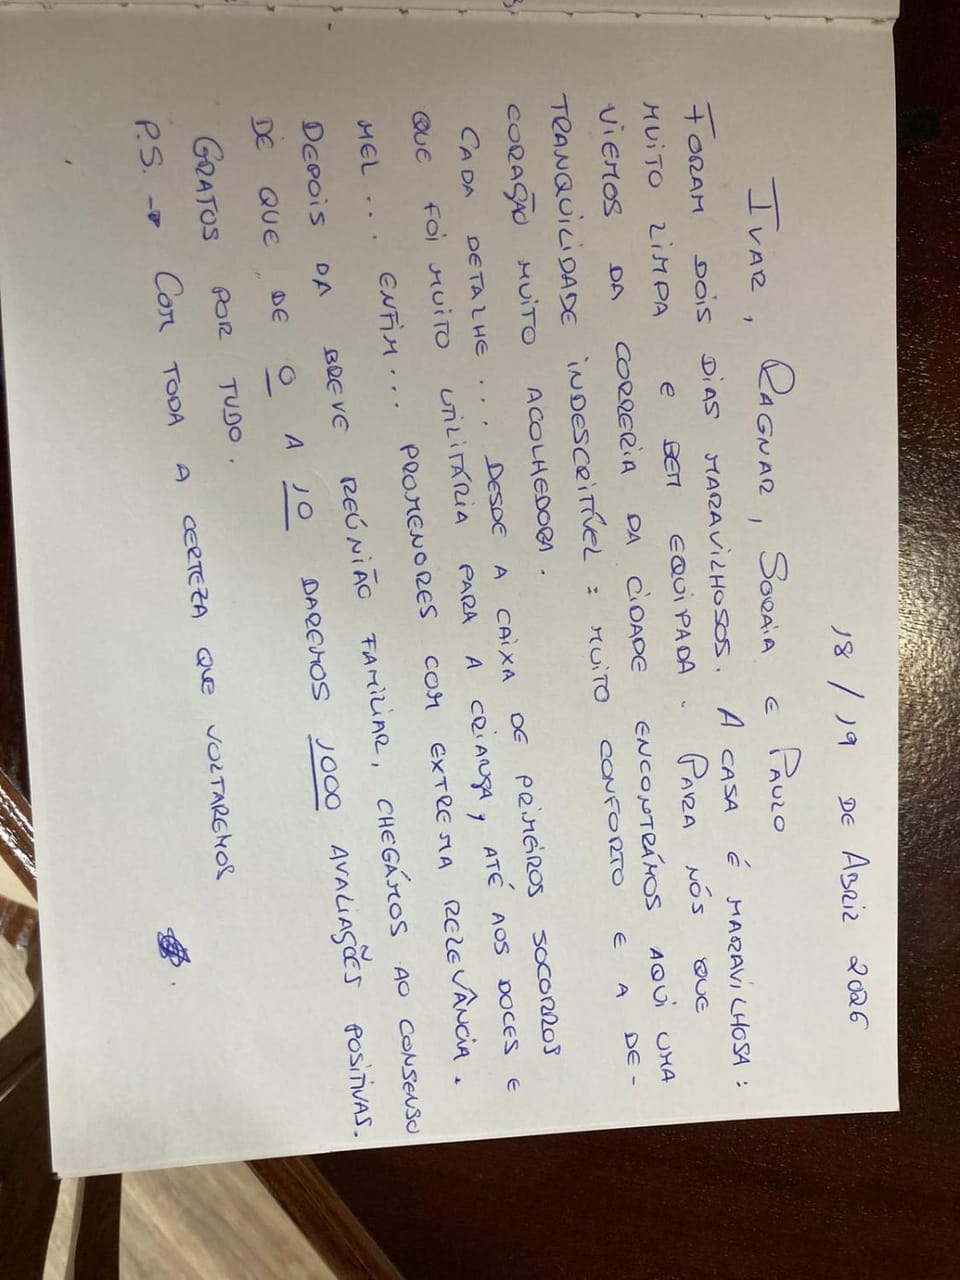 18/19 DE ABRIL 2026
IVAR, RAGNAR, SORAIA E PAULO
FORAM DOIS DIAS MARAVILHOSOS. A CASA É MARAVILHOSA:
MUITO LIMPA E BEM EQUIPADA. PARA NÓS QUE
VIEMOS DA CORRERIA DA CIDADE ENCONTRÁMOS AQUI UMA
TRANQUILIDADE INDESCRITÍVEL: MUITO CONFORTO E A DE-
CORAÇÃO MUITO ACOLHEDORA.
CADA DETALHE... DESDE A CAIXA DE PRIMEIROS SOCORROS
QUE FOI MUITO UTILITÁRIA PARA A CRIANÇA, ATÉ AOS DOCES E
MEL... ENFIM... PROMENORES COM EXTREMA RELEVÂNCIA.
DEPOIS DA BREVE REÚNIÃO FAMILIAR, CHEGÁMOS AO CONSENSO
DE QUE DE 0 A 10 DAREMOS 1000 AVALIAÇÕES POSITIVAS.
GRATOS POR TUDO.
P.S. → COM TODA A CERTEZA QUE VOLTAREMOS